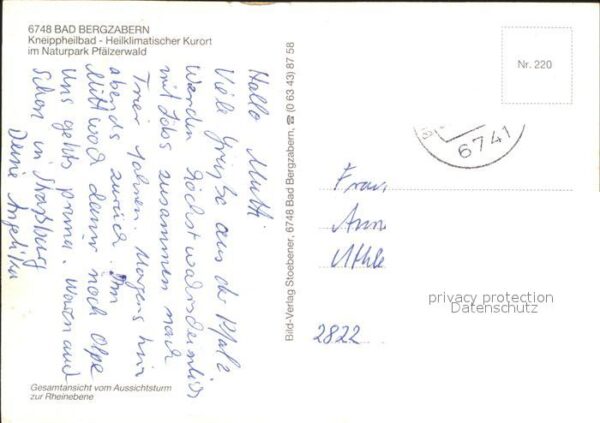 6748 BAD BERGZABERN
Kneippheilbad - Heilklimatischer Kurort
im Naturpark Pfälzerwald
Hallo Mutti
Viele Grüße aus der Pfalz
Werden höchstwahrscheinlich
mit zusammen nach
Trier fahren. Morgens hin
abends zurück. Am
Mittwoch dann nach Olpe
Uns gehts prima. Waren auch
Schon in Straßburg
Deine Angelika
Gesamtansicht vom Aussichtsturm
zur Rheinebene
Bild-Verlag Stoebener, 6748 Bad Bergzabern, ☎ (0 63 43) 87 58
Nr. 220
6741
Frau
Ann
Uthle
privacy protection
Datenschutz
2822